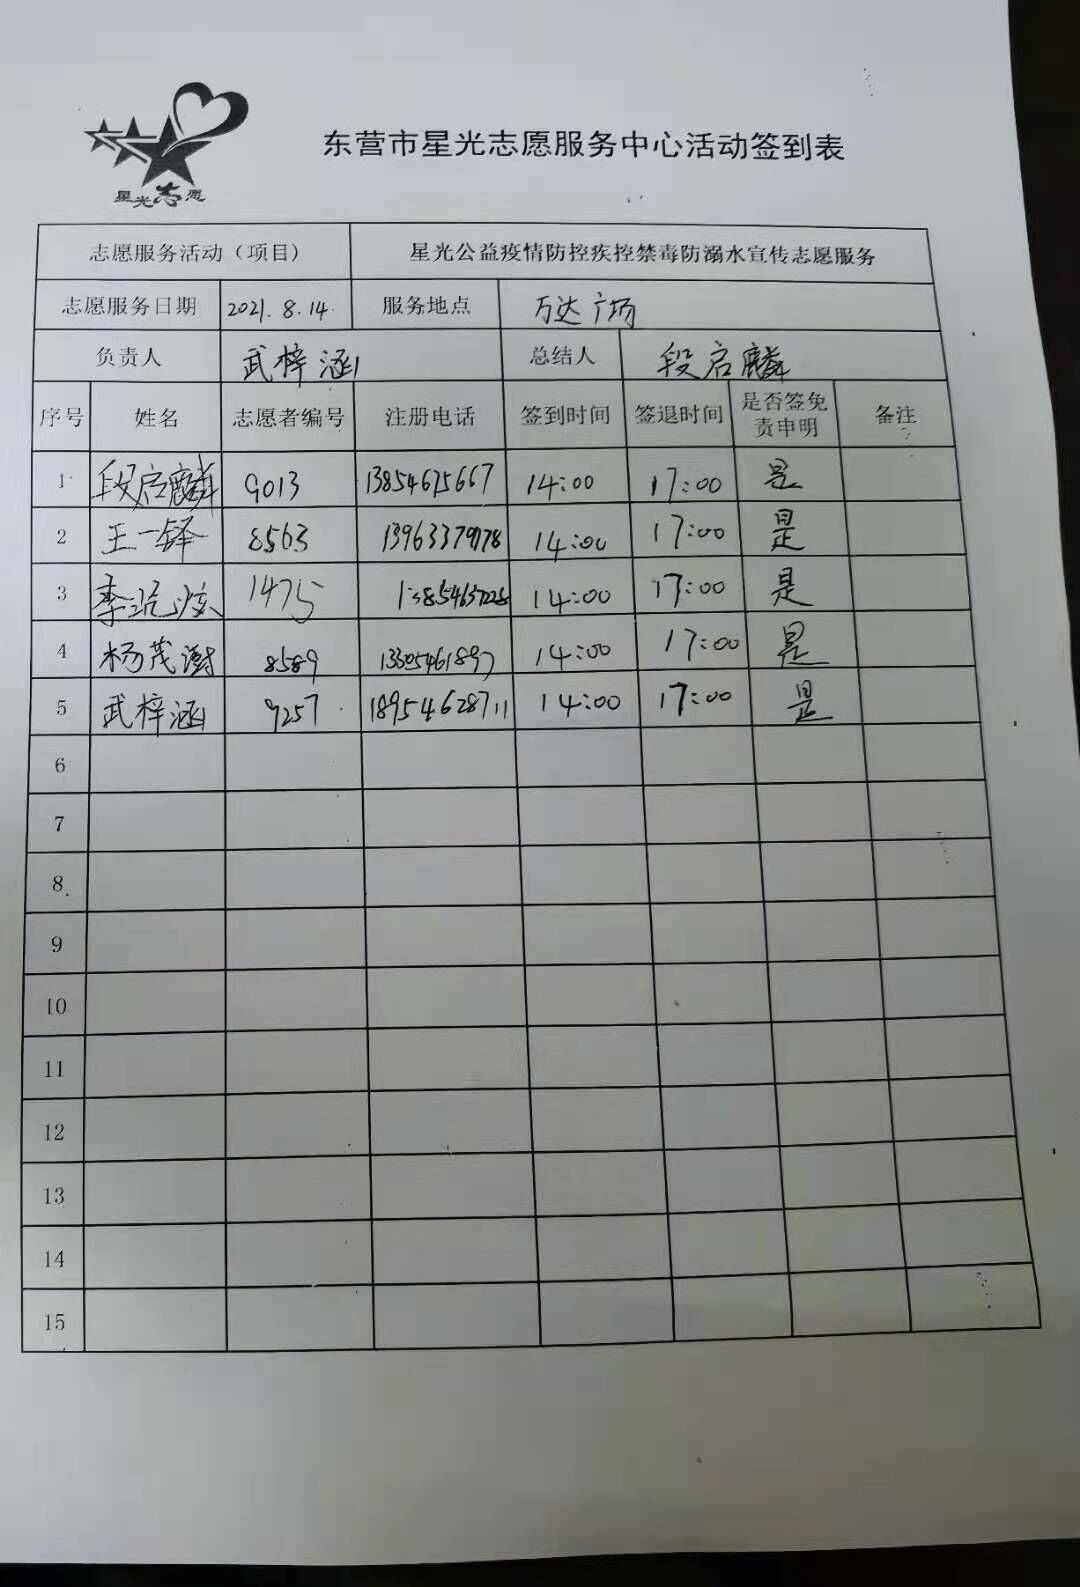 星光志愿
东营市星光志愿服务中心活动签到表
志愿服务活动（项目） 星光公益疫情防控疾控禁毒防溺水宣传志愿服务
志愿服务日期 2021.8.14 服务地点 万达广场
负责人 武梓涵 总结人 段启麟
序号 姓名 志愿者编号 注册电话 签到时间 签退时间 是否签免责申明 备注
1 段启麟 9013 13854675667 14:00 17:00 是
2 王一铎 8563 14:00 17:00 是
3 1475 14:00 17:00 是
4 杨茂澍 8589 14:00 17:00 是
5 武梓涵 9257 18954628711 14:00 17:00 是
6
7
8
9
10
11
12
13
14
15